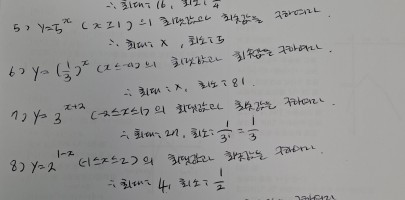 ∴ 최대: 16, 최소: 1/4
5) y=5^x (x≥1) 의 최댓값과 최솟값을 구하여라.
∴ 최대: x, 최소: 5
6) y=(1/3)^x (x≤-4)의 최댓값과 최솟값을 구하여라.
∴ 최대: x, 최소: 81.
7) y=3^(x+2) (-2≤x≤1)의 최댓값과 최솟값을 구하여라.
∴ 최대: 27, 최소: 1/3^1 = 1/3
8) y=2^(1-x) (-1≤x≤2)의 최댓값과 최솟값을 구하여라.
∴ 최대: 4, 최소: 1/2
구하여라